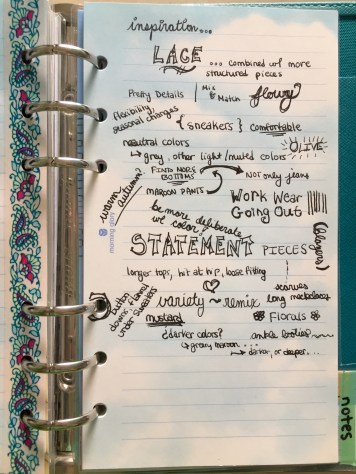 inspiration...
LACE ... combined w/ more
structured pieces
Pretty Details | Mix & Match flowy
flexibility,
seasonal changes
{ sneakers } comfortable
neutral colors
↳ gray, other light/muted colors OLIVE
FIND MORE BOTTOMS → Not only jeans
MAROON PANTS
warm autumn?
Work Wear
Going Out
be more deliberate
w/ color?
STATEMENT PIECES
(blazers)
longer tops, hit at hip, loose fitting
scarves
long necklaces
button downs, flannel
under sweaters
variety ~ remix
mustard
Florals
¿darker colors?
↳ gravy maroon ...
↳ darker, or deeper...
ankle booties
morning glory
notes